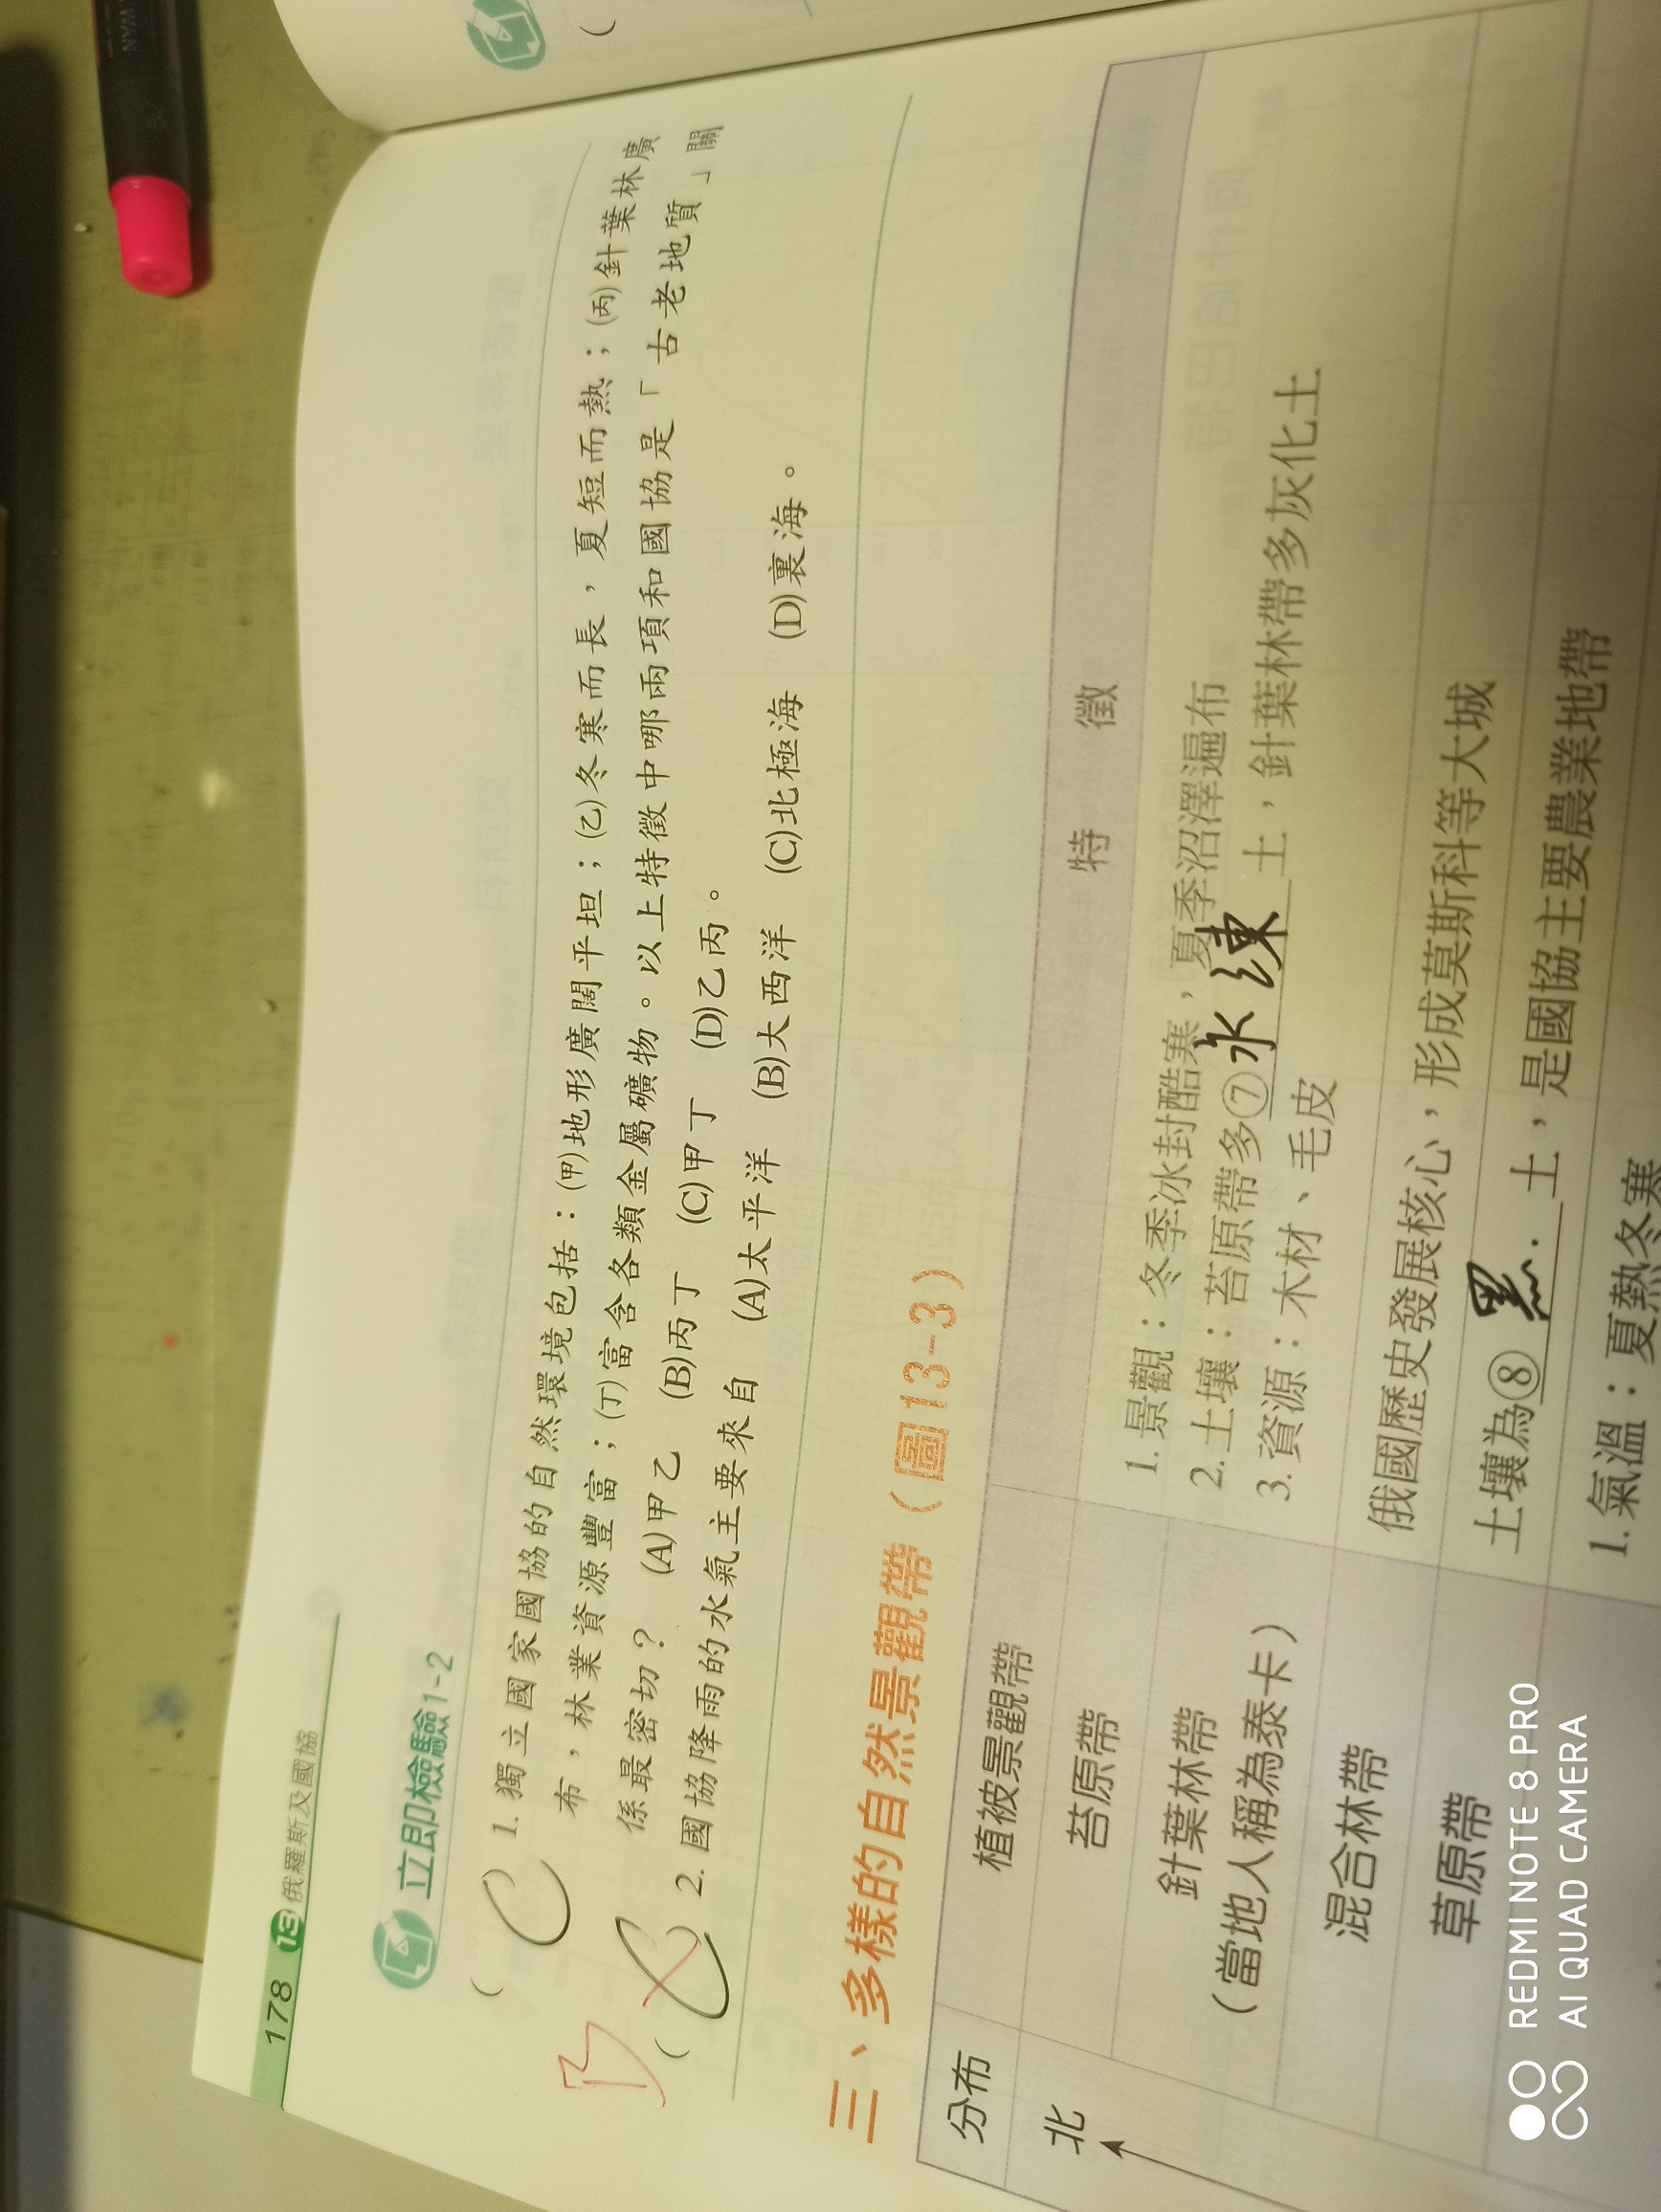 178 13 俄羅斯及國協
立即檢驗1-2
( C 1. 獨立國家國協的自然環境包括：(甲)地形廣闊平坦；(乙)冬寒而長，夏短而熱；(丙)針葉林廣
布，林業資源豐富；(丁)富含各類金屬礦物。以上特徵中哪兩項和國協是「古老地質」關
係最密切？ (A)甲乙 (B)丙丁 (C)甲丁 (D)乙丙。
B ( C 2. 國協降雨的水氣主要來自 (A)太平洋 (B)大西洋 (C)北極海 (D)裏海。
三、多樣的自然景觀帶（圖13-3）
分布 植被景觀帶 特徵
北
苔原帶
針葉林帶
（當地人稱為泰卡）
1. 景觀：冬季冰封酷寒，夏季沼澤遍布
2. 土壤：苔原帶多⑦永凍土，針葉林帶多灰化土
3. 資源：木材、毛皮
混合林帶 俄國歷史發展核心，形成莫斯科等大城
草原帶 土壤為⑧黑土，是國協主要農業地帶
1. 氣溫：夏熱冬寒
REDMI NOTE 8 PRO
AI QUAD CAMERA